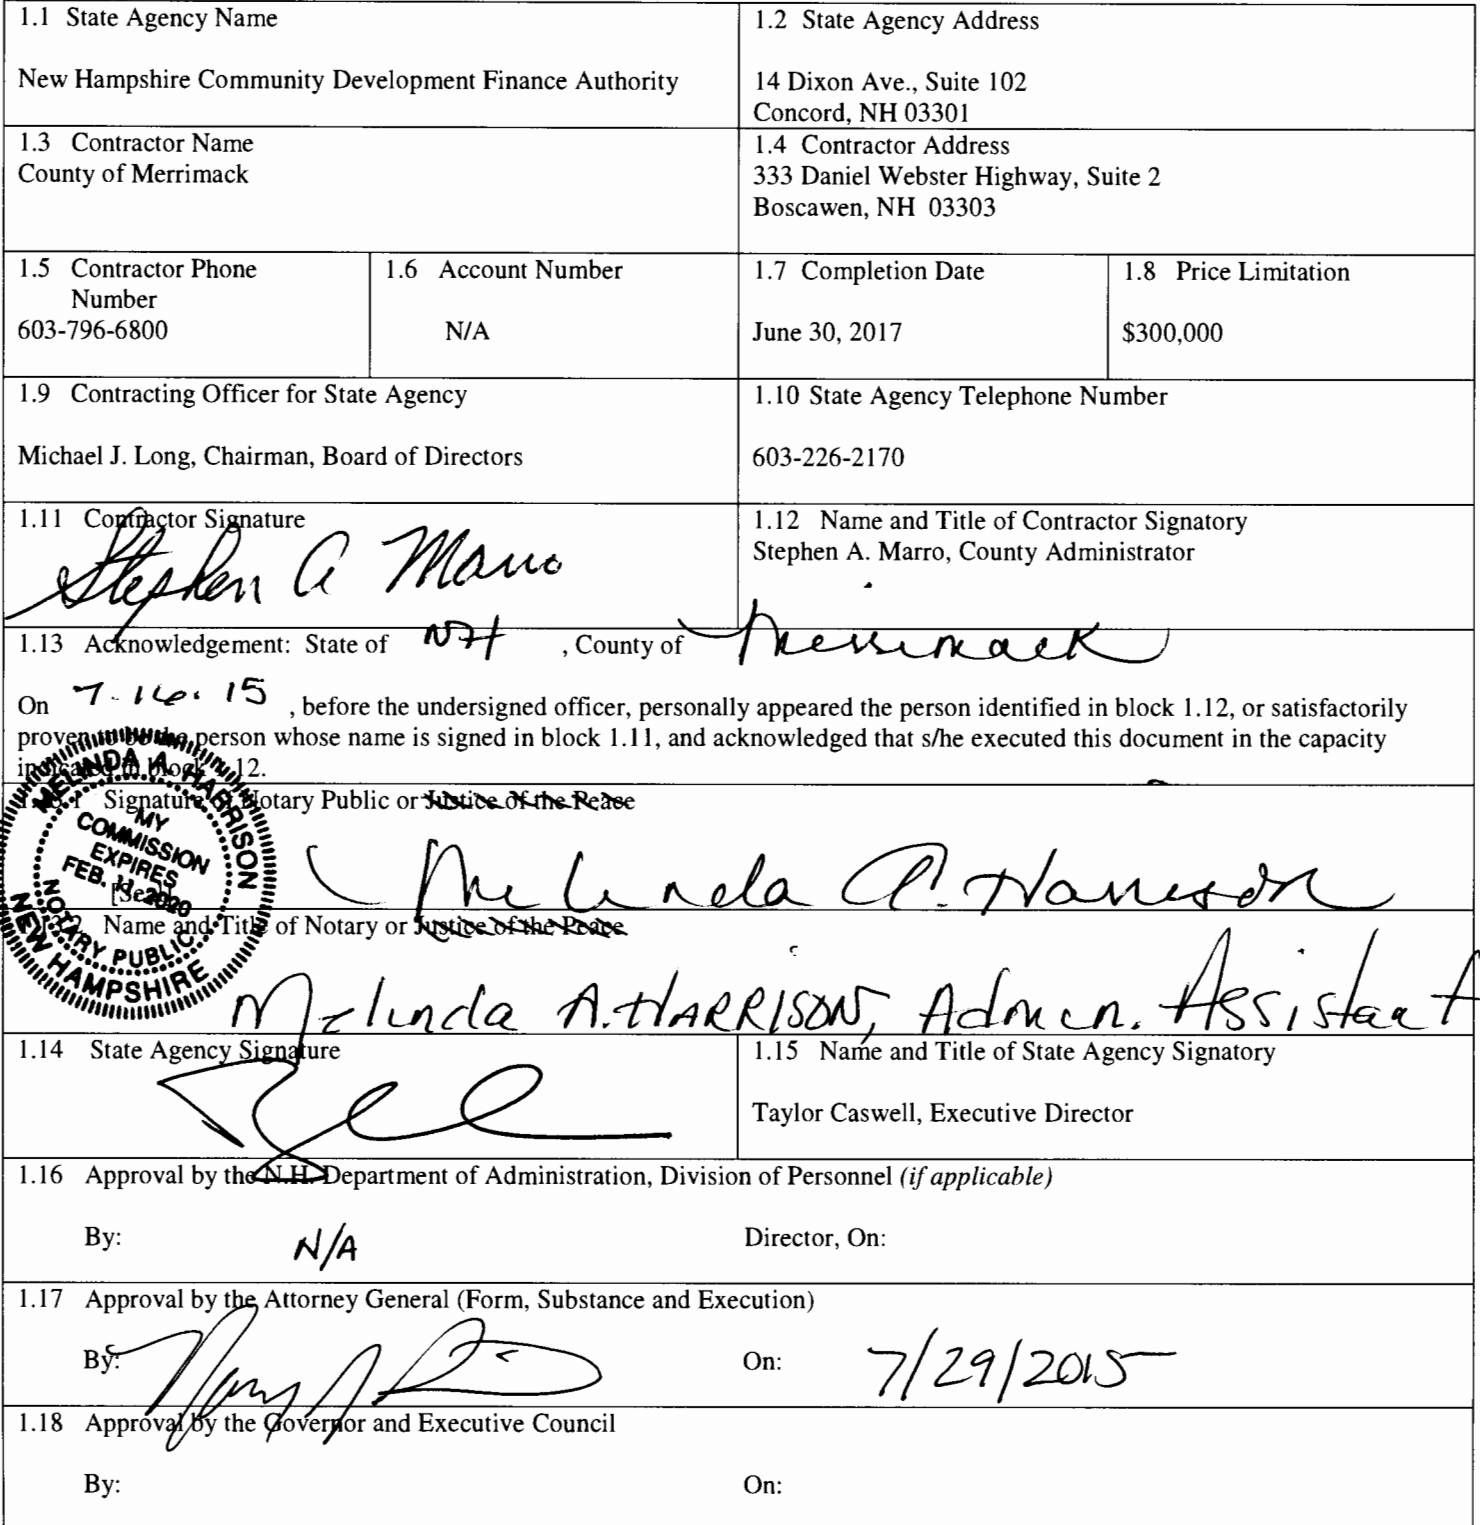 1.1 State Agency Name
New Hampshire Community Development Finance Authority
1.2 State Agency Address
14 Dixon Ave., Suite 102
Concord, NH 03301
1.3 Contractor Name
County of Merrimack
1.4 Contractor Address
333 Daniel Webster Highway, Suite 2
Boscawen, NH 03303
1.5 Contractor Phone
Number
603-796-6800
1.6 Account Number
N/A
1.7 Completion Date
June 30, 2017
1.8 Price Limitation
$300,000
1.9 Contracting Officer for State Agency
Michael J. Long, Chairman, Board of Directors
1.10 State Agency Telephone Number
603-226-2170
1.11 Contractor Signature
Stephen A Marro
1.12 Name and Title of Contractor Signatory
Stephen A. Marro, County Administrator
1.13 Acknowledgement: State of NH , County of Merrimack
On 7.16.15 , before the undersigned officer, personally appeared the person identified in block 1.12, or satisfactorily
proven to be the person whose name is signed in block 1.11, and acknowledged that s/he executed this document in the capacity
indicated in block 1.12.
1.13.1 Signature of Notary Public or Justice of the Peace
MELINDA A. HARRISON
MY
COMMISSION
EXPIRES
FEB. 11, 2020
NOTARY PUBLIC
NEW HAMPSHIRE
[Seal]
Melinda A. Harrison
1.13.2 Name and Title of Notary or Justice of the Peace
Melinda A. HARRISON, Admin. Assistant
1.14 State Agency Signature
1.15 Name and Title of State Agency Signatory
Taylor Caswell, Executive Director
1.16 Approval by the N.H. Department of Administration, Division of Personnel (if applicable)
By: N/A Director, On:
1.17 Approval by the Attorney General (Form, Substance and Execution)
By: On: 7/29/2015
1.18 Approval by the Governor and Executive Council
By: On: